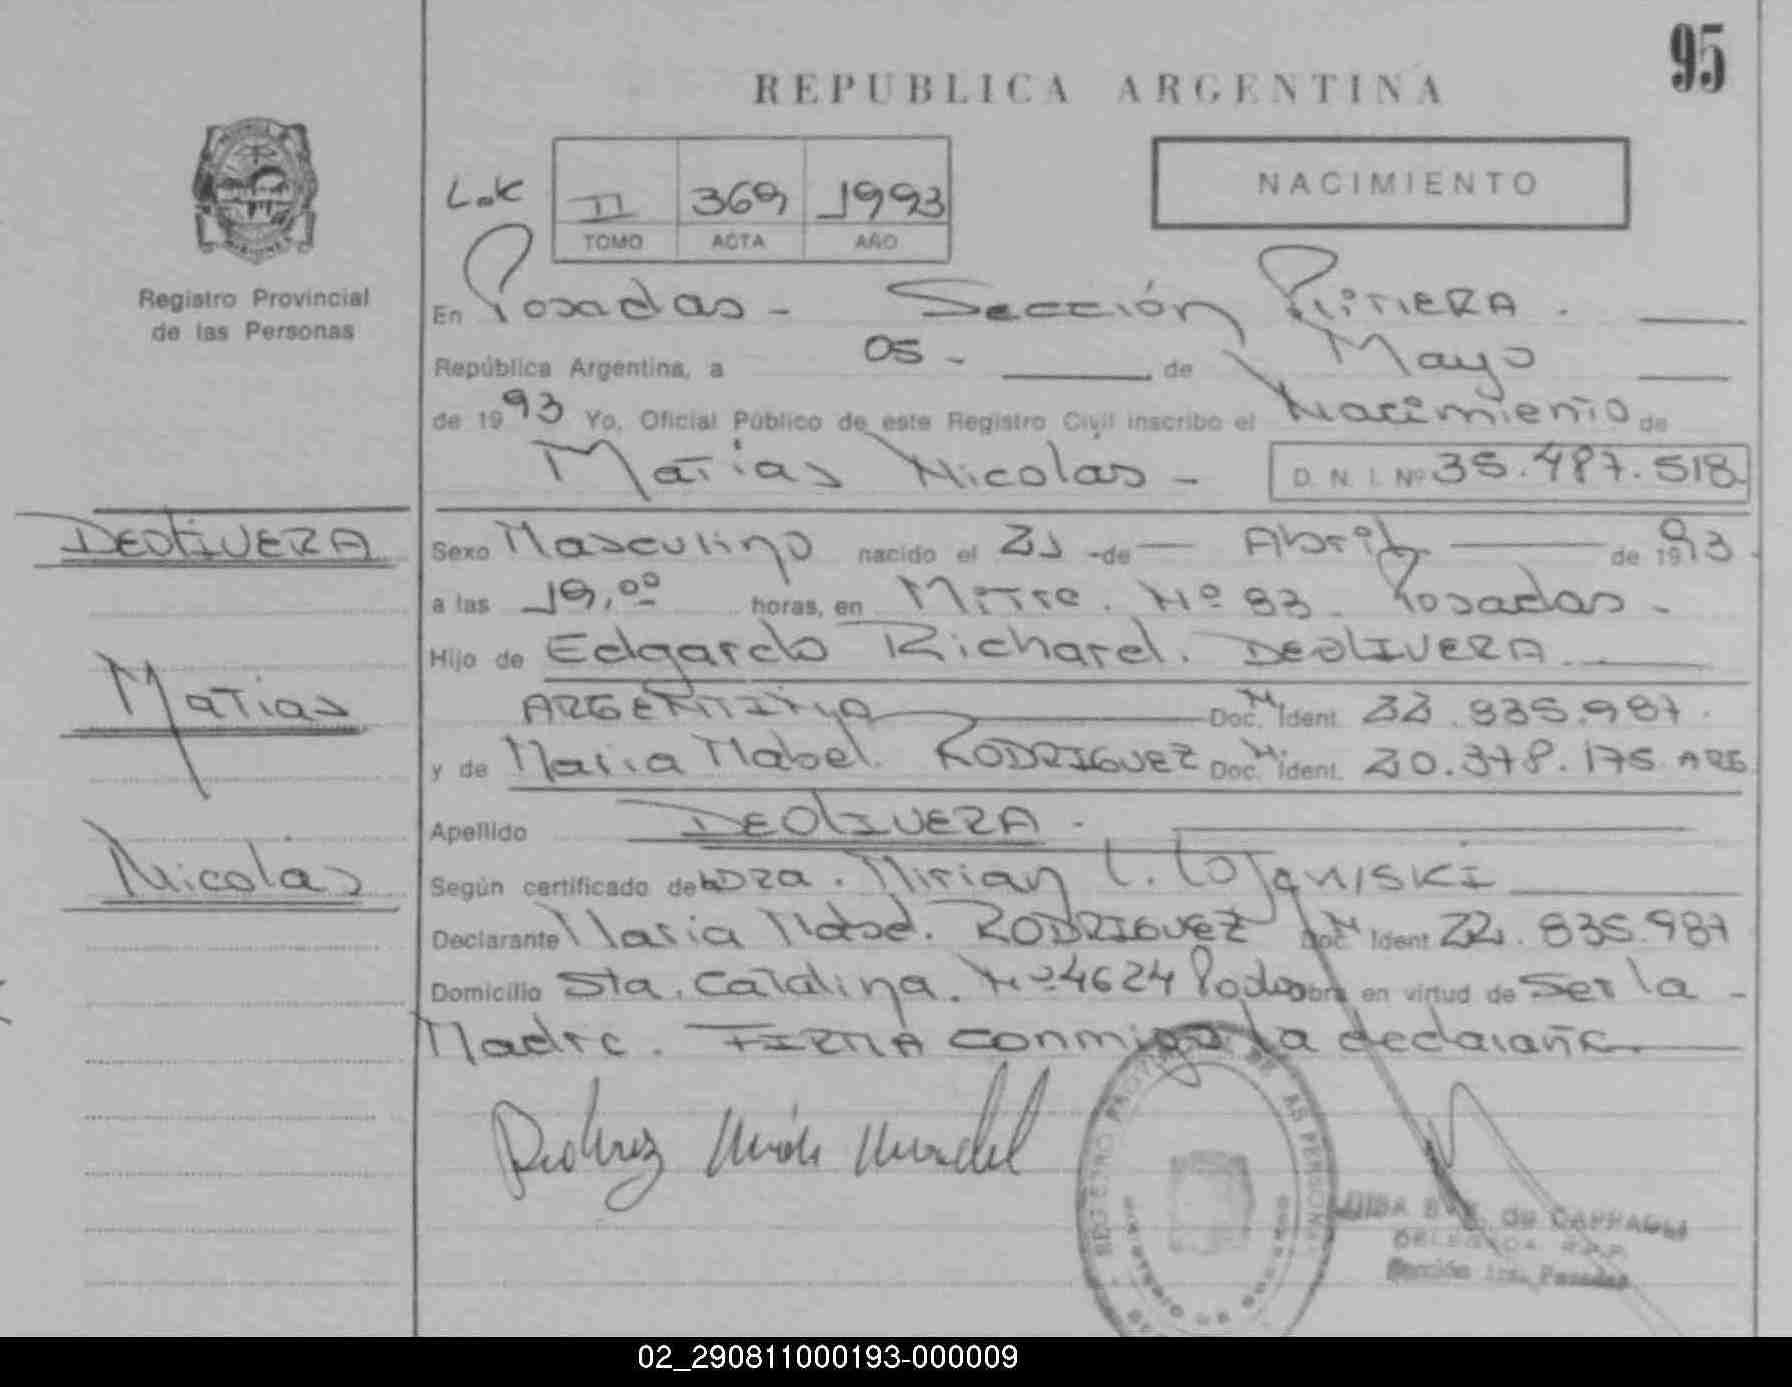 95
REPUBLICA ARGENTINA
NACIMIENTO
II 369 1993
TOMO ACTA AÑO
Registro Provincial
de las Personas
En Posadas - Sección Primera.
República Argentina, a 05 - de Mayo
de 1993 Yo, Oficial Público de este Registro Civil inscribo el Nacimiento de
Matias Nicolás - D. N. I. Nº 35.487.518
DEOLIVERA
Matias
Nicolás
Sexo Masculino nacido el 21 -de- Abril de 1993
a las 19,00 horas, en Mitre. Nº 83 Posadas -
Hijo de Edgardo Richard. DEOLIVERA
ARGENTINA Doc. Ident. 22.835.987.
y de Maria Mabel. RODRIGUEZ Doc. Ident. 20.378.175 ARG
Apellido DEOLIVERA.
Según certificado de la Dra. Mirian L.
Declarante Maria Mabel. RODRIGUEZ Doc. Ident 22.835.987
Domicilio Sta. Catalina. Nº 4624 Obra en virtud de Ser la -
Madre. FIRMA conmigo la declarante.
REGISTRO PROVINCIAL DE LAS PERSONAS
Sección 1ra. Posadas
02_290811000193-000009